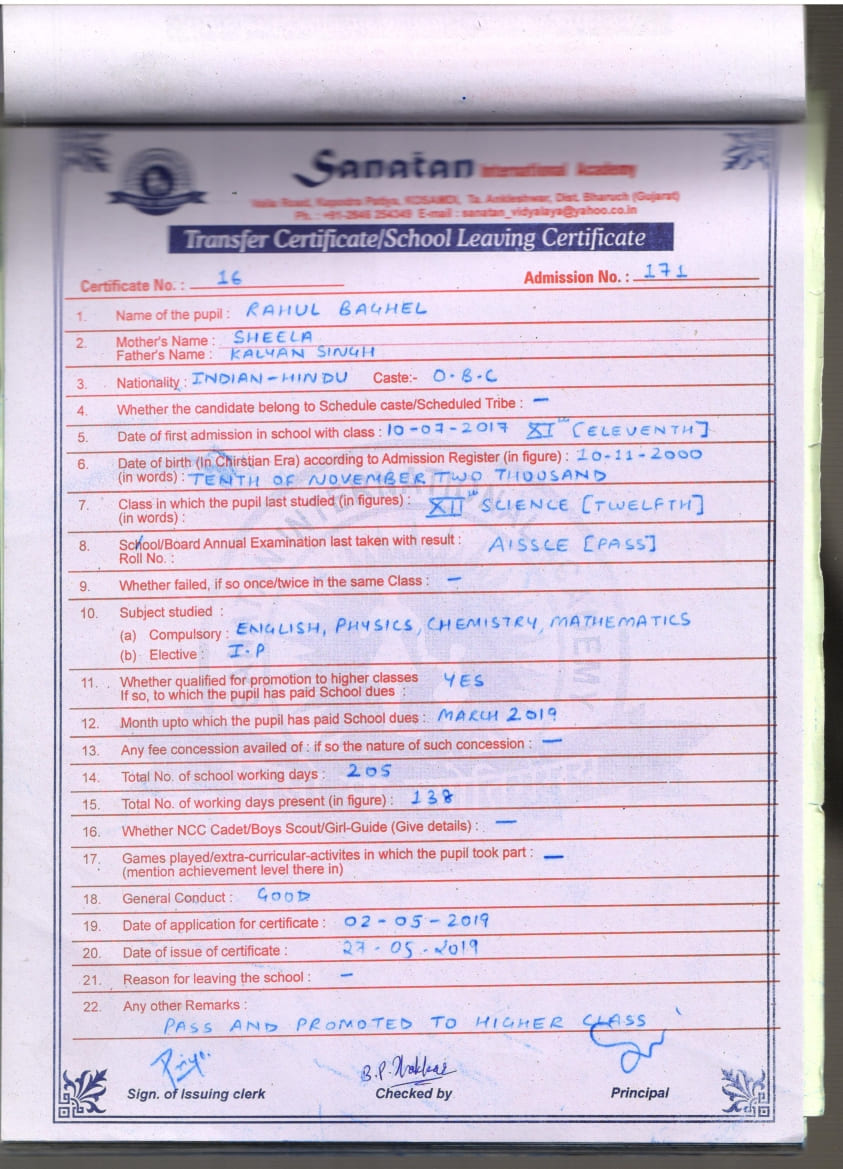 Sanatan International Academy
Valia Road, Kapodra Patiya, KOSAMDI, Ta. Ankleshwar, Dist. Bharuch (Gujarat)
Ph. : +91-2646 254349 E-mail : sanatan_vidyalaya@yahoo.co.in
Transfer Certificate/School Leaving Certificate
Certificate No. : 16 Admission No. : 171
1. Name of the pupil : RAHUL BAGHEL
2. Mother's Name : SHEELA
Father's Name : KALYAN SINGH
3. Nationality : INDIAN-HINDU Caste:- O.B.C
4. Whether the candidate belong to Schedule caste/Scheduled Tribe : —
5. Date of first admission in school with class : 10-07-2017 XIth [ELEVENTH]
6. Date of birth (In Chirstian Era) according to Admission Register (in figure) : 10-11-2000
(in words) : TENTH OF NOVEMBER TWO THOUSAND
7. Class in which the pupil last studied (in figures) : XIIth SCIENCE [TWELFTH]
(in words) :
8. School/Board Annual Examination last taken with result : AISSCE [PASS]
Roll No. :
9. Whether failed, if so once/twice in the same Class : —
10. Subject studied :
(a) Compulsory : ENGLISH, PHYSICS, CHEMISTRY, MATHEMATICS
(b) Elective : I.P
11. Whether qualified for promotion to higher classes YES
If so, to which the pupil has paid School dues :
12. Month upto which the pupil has paid School dues : MARCH 2019
13. Any fee concession availed of : if so the nature of such concession : —
14. Total No. of school working days : 205
15. Total No. of working days present (in figure) : 138
16. Whether NCC Cadet/Boys Scout/Girl-Guide (Give details) : —
17. Games played/extra-curricular-activites in which the pupil took part : —
(mention achievement level there in)
18. General Conduct : GOOD
19. Date of application for certificate : 02-05-2019
20. Date of issue of certificate : 27-05-2019
21. Reason for leaving the school : —
22. Any other Remarks :
PASS AND PROMOTED TO HIGHER CLASS
Sign. of Issuing clerk Checked by Principal